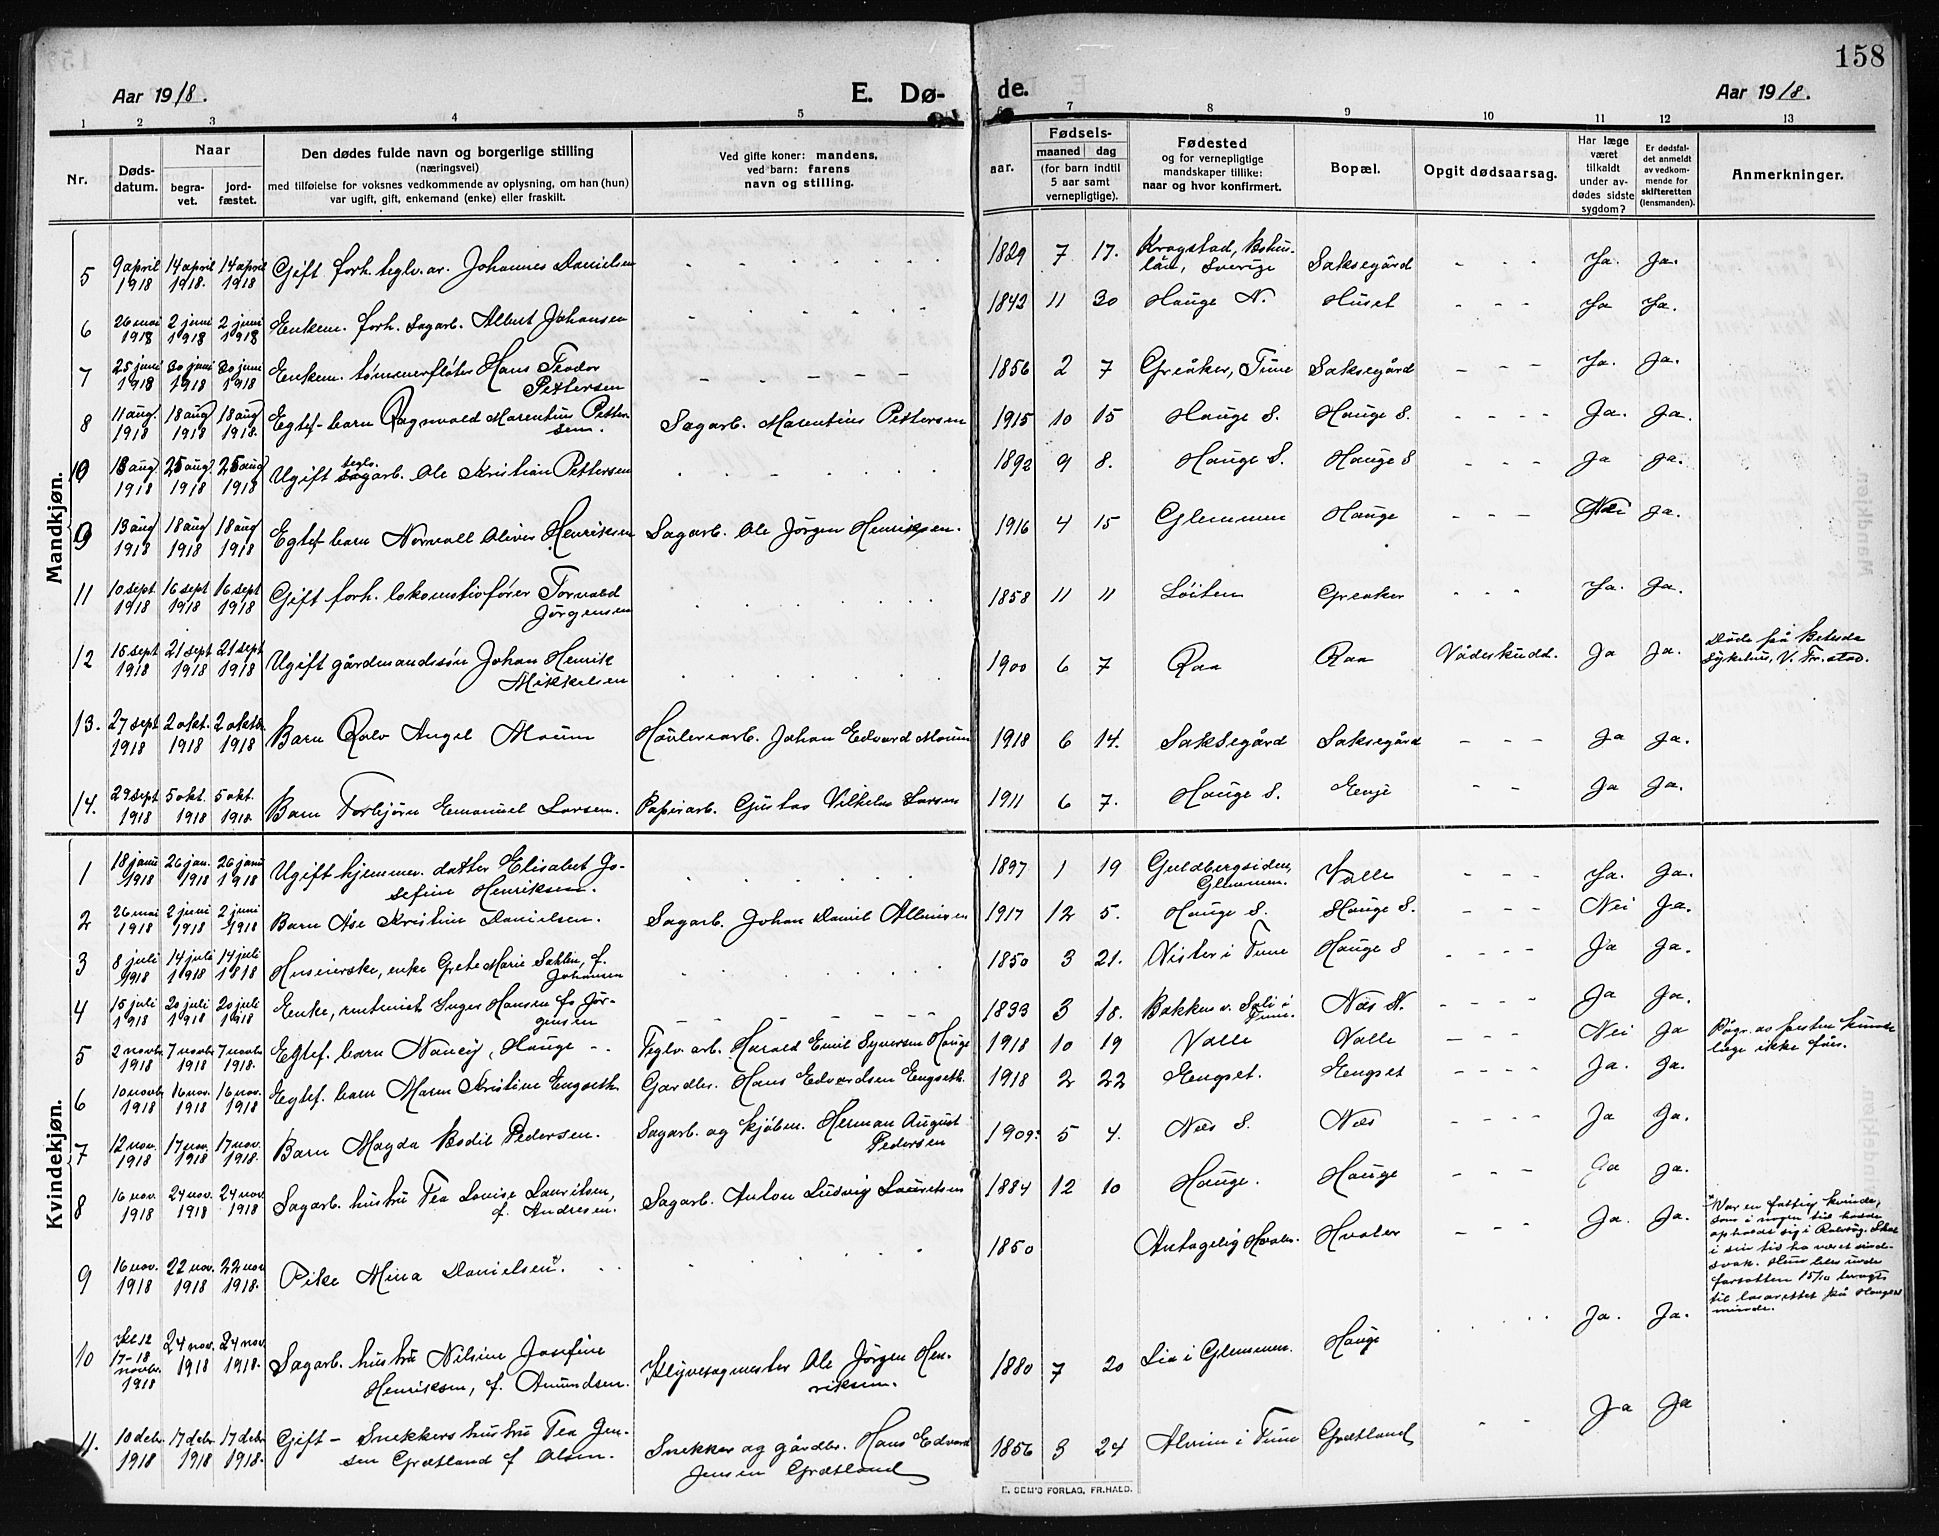 158
Aar 1918.
E. Dø-
de.
Aar 1918.
1 2 3 4 5 6 7 8 9 10 11 12 13
Nr.
Døds-
datum.
Naar
begra-
vet.
jord-
fæstet.
Den dødes fulde navn og borgerlige stilling
(næringsvei)
med tilføielse for voksnes vedkommende av oplysning, om han (hun)
var ugift, gift, enkemand (enke) eller fraskilt.
Ved gifte koner: mandens,
ved barn: farens
navn og stilling.
aar.
Fødsels-
maaned dag
(for barn indtil
5 aar samt
vernepligtige).
Fødested
og for vernepligtige
mandskaper tillike:
naar og hvor konfirmert.
Bopæl.
Opgit dødsaarsag.
Har læge
været
tilkaldt
under av-
dødes sidste
sygdom?
Er dødsfal-
det anmeldt
av vedkom-
mende for
skifteretten
(lensmanden).
Anmerkninger.
Mandkjøn.
5 9 april 1918 14 april 1918. 14 april 1918 Gift forh. teglv. ar. Johannes Danielsen 1829 7 17. Krogstad, Bohus-
län, Sverige Saksegård - - - Ja. Ja.
6 26 mai 1918 2 juni 1918 2 juni 1918 Enkem. forh. Sagarb. Albert Johansen 1843 11 30 Hauge N. Huset - - - Ja Ja.
7 25 juni 1918 30 juni 1918 30 juni 1918 Enkem. tømmerfløter Hans Teodor
Pettersen 1856 2 7 Greåker, Tune Saksegård - - - Ja. Ja.
8 11 aug. 1918 18 aug 1918 18 aug 1918. Egtef. barn Ragnvald Marentius Petter-
sen. Sagarb. Marentius Pettersen 1915 10 15 Hauge S. Hauge S. - - - - Ja. Ja.
10 18 aug. 1918 25 aug. 1918 25 aug 1918 Ugift teglv. sagarb. Ole Kristian Pettersen 1892 9 8. Hauge S. Hauge S - - - Ja Ja.
9 13 aug 1918 18 aug 1918 18 aug 1918 Egtef barn Norvall Oliver Henriksen Sagarb. Ole Jörgen Henriksen. 1916 4 15 Glemmen Hauge - - - Nei Ja.
11 10 sept. 1918 16 sept 1918 16 sept 1918 Gift forh. lokomotivfører Torvald
Jörgensen 1858 11 11 Löiten Greaker - - - Ja. Ja.
12 15 sept 1918 21 sept 1918 21 sept 1918 Ugift gårdmandssön Johan Henrik
Mikkelsen 1900 6 7 Raa Raa Vådeskudd. Ja Ja. Døde på Betesda
Sykehus, V. Fr.stad.
13. 27 sept 1918 2 okt. 1918 2 oktbr 1918 Barn Rolv Angel Moum Hövleriarb. Johan Edvard Moum 1918 6 14. Saksegård Saksegård - - - Ja Ja.
14. 29 sept 1918 5 okt. 1918 5 okt. 1918. Barn Torbjörn Emanuel Larsen. Papirarb. Gustav Vilhelm Larsen 1911 6 7. Hauge S. Eenje - - Ja Ja.
Kvindekjøn.
1 18 janu 1918 26 jan. 1918 26 janu 1918 Ugift hjemmev. datter Elisabet Jo-
sefine Henriksen. 1897 1 19 Guldbergsiden,
Glemmen. Valle - - - Ja. Ja.
2 26 mai 1918 2 juni 1918 2 juni 1918 Barn Åse Kristine Danielsen. Sagarb. Johan Daniel Albinsen 1917 12 5. Hauge S. Hauge S. - - - Nei Ja.
3 8 juli 1918 14 juli 1918 14 juli 1918 Huseierske, enke Grete Marie Sakken, f.
Johansen 1850 3 21. Nister i Tune Hauge S - - - Ja Ja.
4 15 juli 1918 20 juli 1918 20 juli 1918 Enke, rentenist Inger Hansen f. Jör-
gensen 1833 3 18. Bakken v. Soli i
Tune. Næs N. - - - - Ja Ja.
5 2 novbr 1918 7 novbr 1918 7 novbr. 1918. Egtef. barn Nancy, Hauge - - Teglv. arb. Harald Emil Syversen Hauge 1918 10 19 Valle Valle - - Nei Ja Pågr. av farsten kunde
læge ikke fåes.
6 10 novbr 1918 16 nov. 1918 16 nov. 1918 Egtef. barn Maren Kristine Engseth Gardbr. Hans Edvardsen Engseth. 1918 2 22 Eengset. Eengset - - - - Ja. Ja.
7 12 nov. 1918 17 nov. 1918 17 nov. 1918. Barn Magda Bodil Pedersen. Sagarb. og kjøbm. Herman August
Pedersen 1909. 5 4. Næs S. Næs - - - Ja Ja.
8 16 nov. 1918 24 nov. 1918 24 nov. 1918 Sagarb. hustru Tea Lovise Lauritsen,
f. Andresen. Sagarb. Anton Ludvig Lauritsen 1884 12 10 Hauge. Hauge - - - Ja Ja.
9 16 nov. 1918 22 nov. 1918 22 nov 1918. Pike Mina Danielsen. 1850 Antagelig Hvaler. Hvaler - - - Ja. Ja. Var en fattig kvinde,
som i nogen tid hadde
opholdt sig i Rolvsøy. Skal
i sin tid ha været sind-
svak. Hun blev under
farsotten 15/11 bragt
til lasarettet på Hauges
minde.
10 Kl. 12 17-18 novbr. 1918 24 nov. 1918 24 nov. 1918. Sagarb. hustru Nilsine Josefine
Henriksen, f. Amundsen. Klyvesagmester Ole Jörgen Hen-
riksen. 1880 7 20 Lie i Glemmen. Hauge Ja. Ja.
11. 10 debr. 1918 17 debr 1918 17 debr 1918. Gift - Snekkers hustru Tea Jen-
sen Grætland f Olsen. Snekker og gårdbr. Hans Edvard
Jensen Grætland 1856 3 24 Alvim i Tune Grætland - - Ja Ja
E. SEM'S FORLAG, FR.HALD.